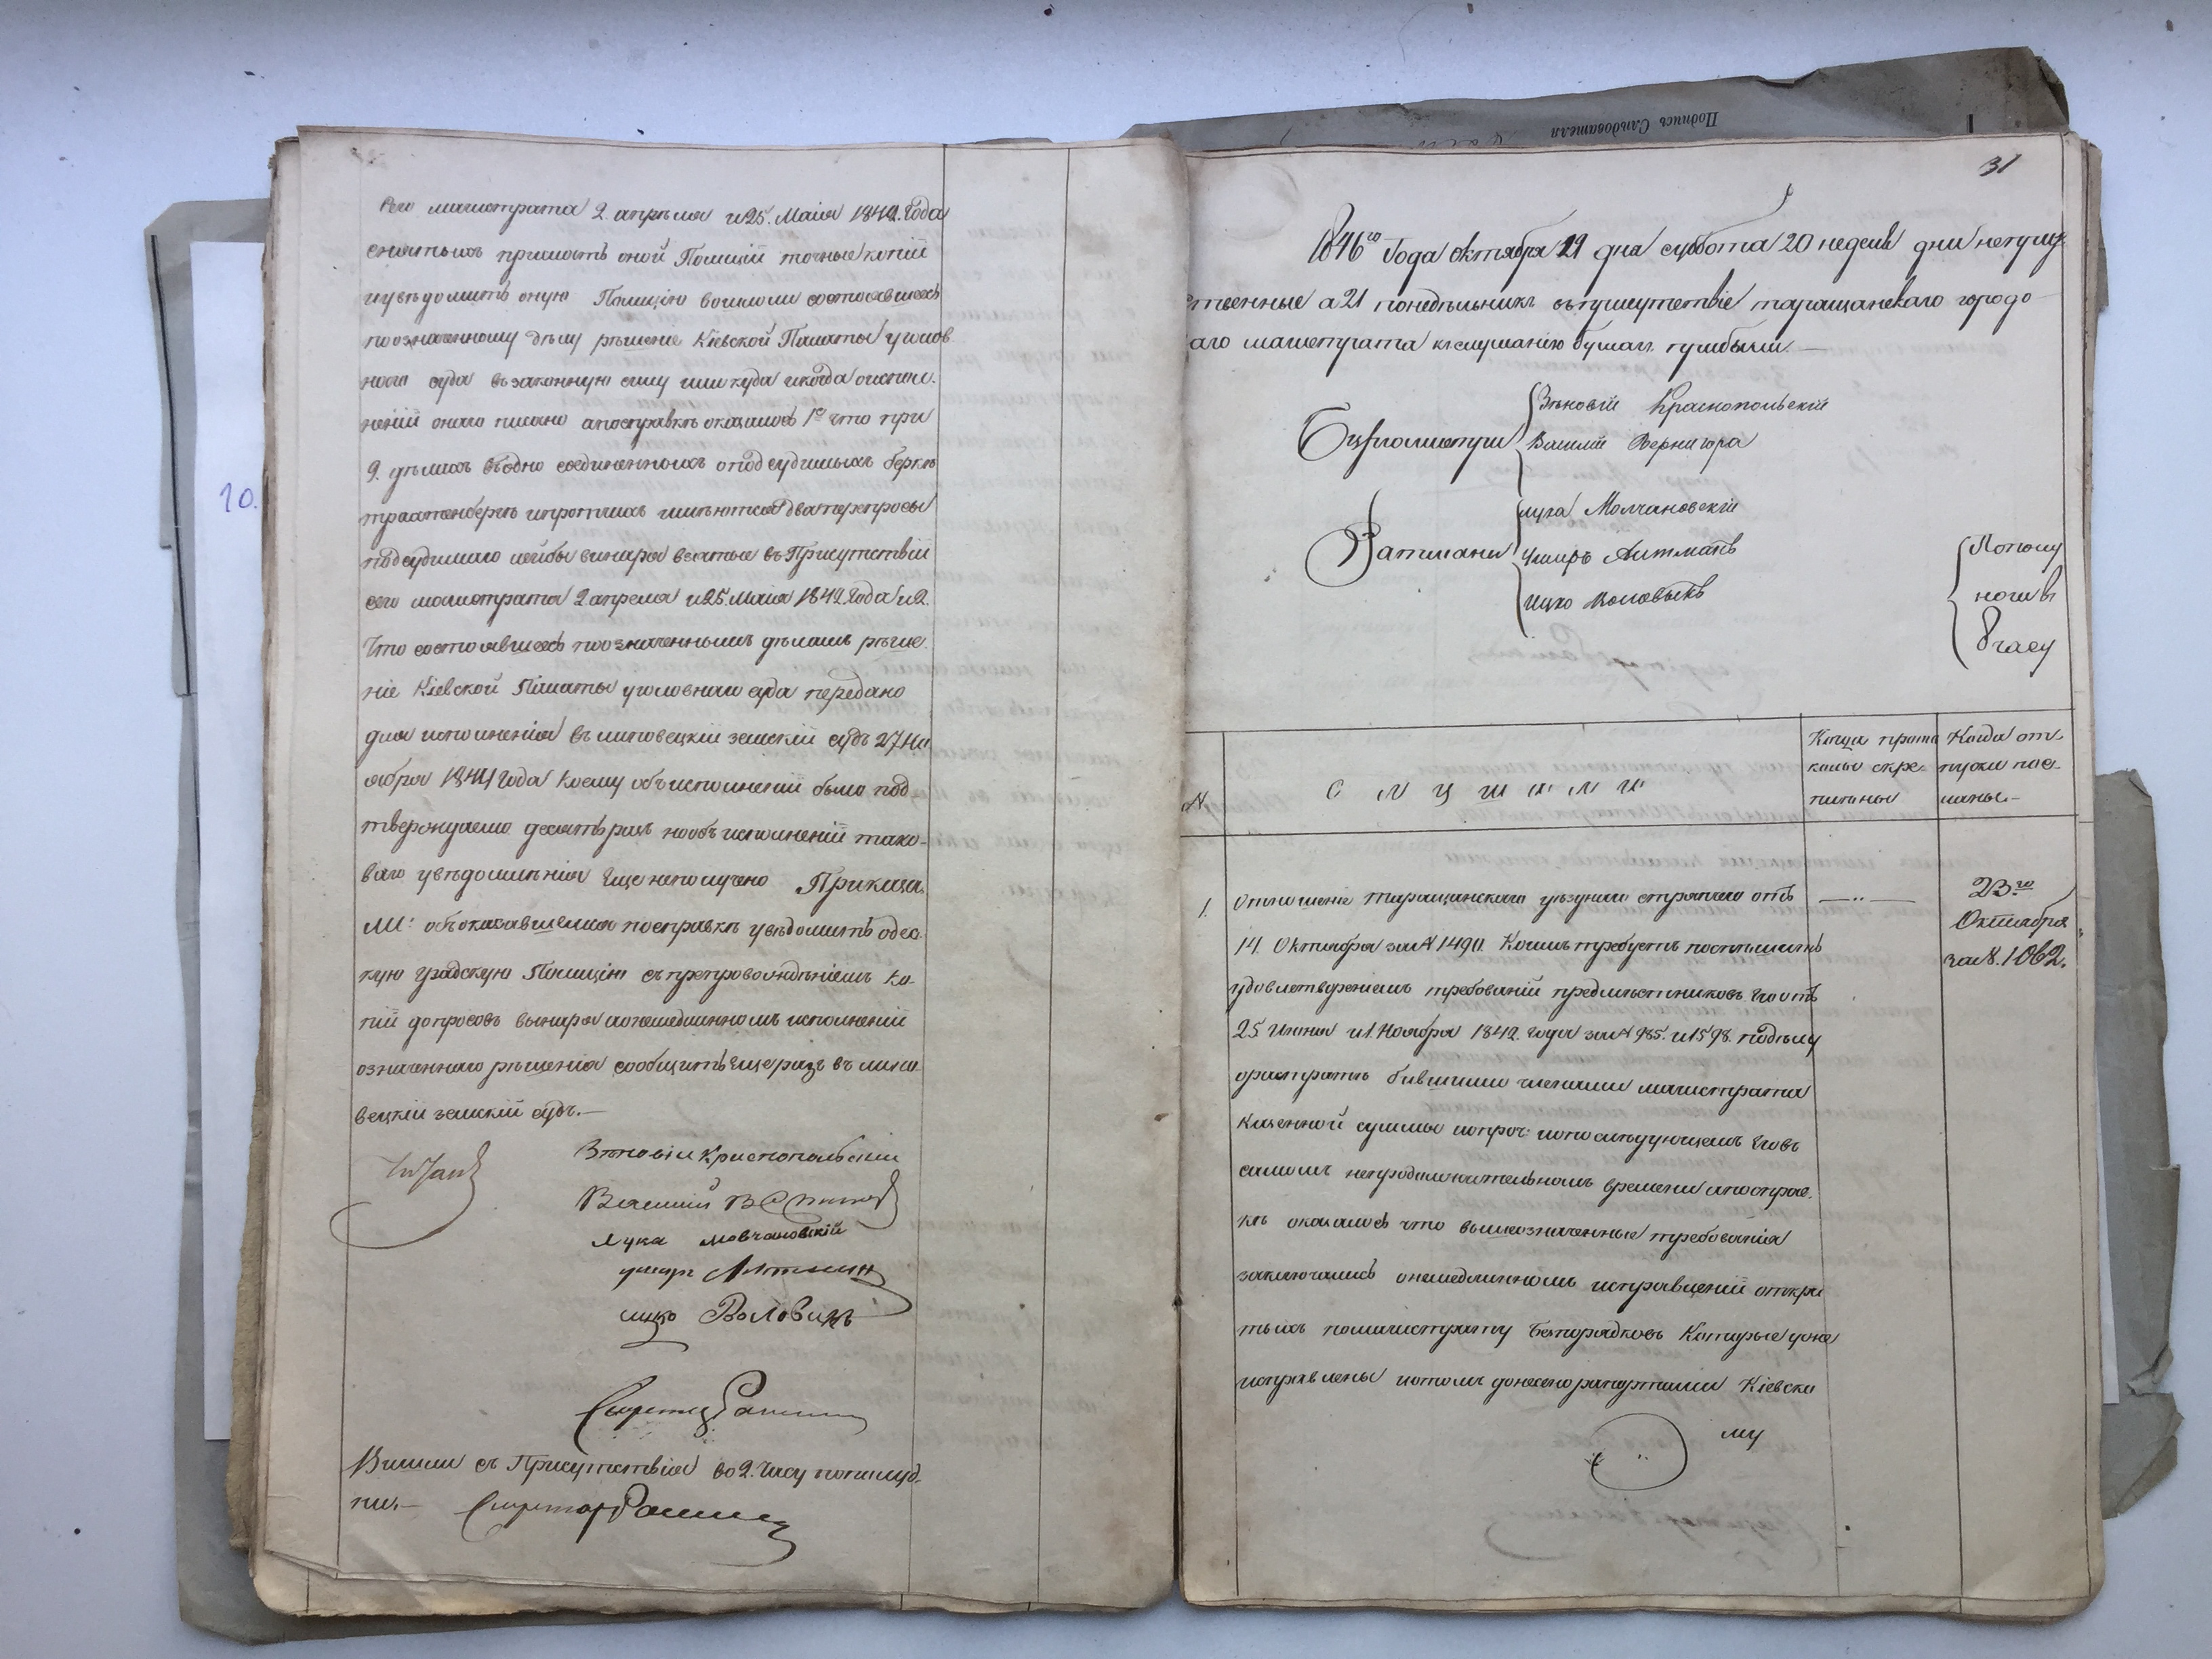 сего магистрата 2. апреля и 25. Маія 1842. Года
снятыхъ прислать оной Полиціи точные копіи
и увѣдомить оную Полицію вошло ли состоявшееся
по означенному дѣлу рѣшеніе Кіевской Палаты уголов
наго суда въ законную силу или куда и когда о испол.
неніи онаго писано а по справкѣ оказалось 1е что при
9. дѣлахъ въ одно соединенныхъ о подсудимыхъ беркѣ
траатенбергѣ и протчихъ имѣются два перепросы
подсудимаго лейбы винара взятые въ Присутствіи
сего магистрата 2 апреля и 25. Маія 1842 Года и 2.
Что состоявшееся по означеннымъ дѣламъ рѣше.
ніе Кіевской Палаты уголовнаго суда передано
для исполненія въ липовецкій земскій судъ 27 Но
ября 1844 Года коему объ исполненіи было под
тверждаемо десять разъ но объ исполненіи тако-
ваго увѣдомленія еще не получено Приказа
ли: объ оказавшемся по справкѣ увѣдомить одес.
кую градскую Полицію съ препровожденіемъ ко-
пій допросовъ винара а о немедленномъ исполненіи
означеннаго рѣшенія сообщить еще разъ въ липо
вецкій земскій судъ.—
Зѣновій Краснопольскій
Василий
Лука Мовчановскій
умеръ Литманъ
ицко Воловикъ
Секретарь
Вышли съ Присутствія во 2. Часу пополуд-
ни.— Секретарь
31
1846го Года октября 19 дна суббота 20 неделя дни непрису
тственные а 21 понедѣльникъ въ присутствіе таращанскаго городо
аго магистрата къ слушанію бумагъ прибыли —
Бургомистры
Зѣновій Краснопольскій
Василій Вернигора
Ратманы
лука Молчановскій
Умеръ Литманъ
Ицко Воловыкъ
Пополу
ночи въ
8 часу
№.
Слушали
Когда прото
колы скре-
плены
Когда от-
пуски пос-
ланы.—
1.
Отношеніе таращанскаго уѣзднаго стряпчаго отъ
14. Октября за № 1490. Коимъ требуетъ поспѣшить
удовлетвореніемъ требованій предмѣстниковъ его отъ
25 Июня и 1. Ноября 1842. года за № 985. и 1598. по дѣлу
о растратѣ бывшими членами магистрата
Казенной суммы и проч: и о послѣдующемъ его въ
самомъ непродолжительномъ времени а по справ.
кѣ оказалось что вышеозначенные требованія
заключались о немедленномъ исправленіи откры
тыхъ по магистрату безпорядковъ Которые уже
исправлены и о томъ донесено рапортами Кіевско
му
23.го
Октября
за №. 1062.
Подпись Слѣдователя
10.